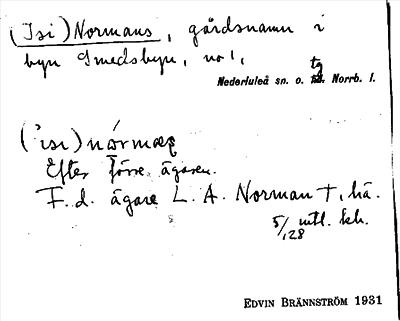 (Isi) Normans, gårdsnamn i
byn Smedsbyn, no 1,
tg
Nederluleå sn. o. hd. Norrb. l.
('ısı) nórmas
Efter förre ägaren.
F. d. ägare L. A. Norman †, hä.
5/128 mtl. kh.
EDVIN BRÄNNSTRÖM 1931